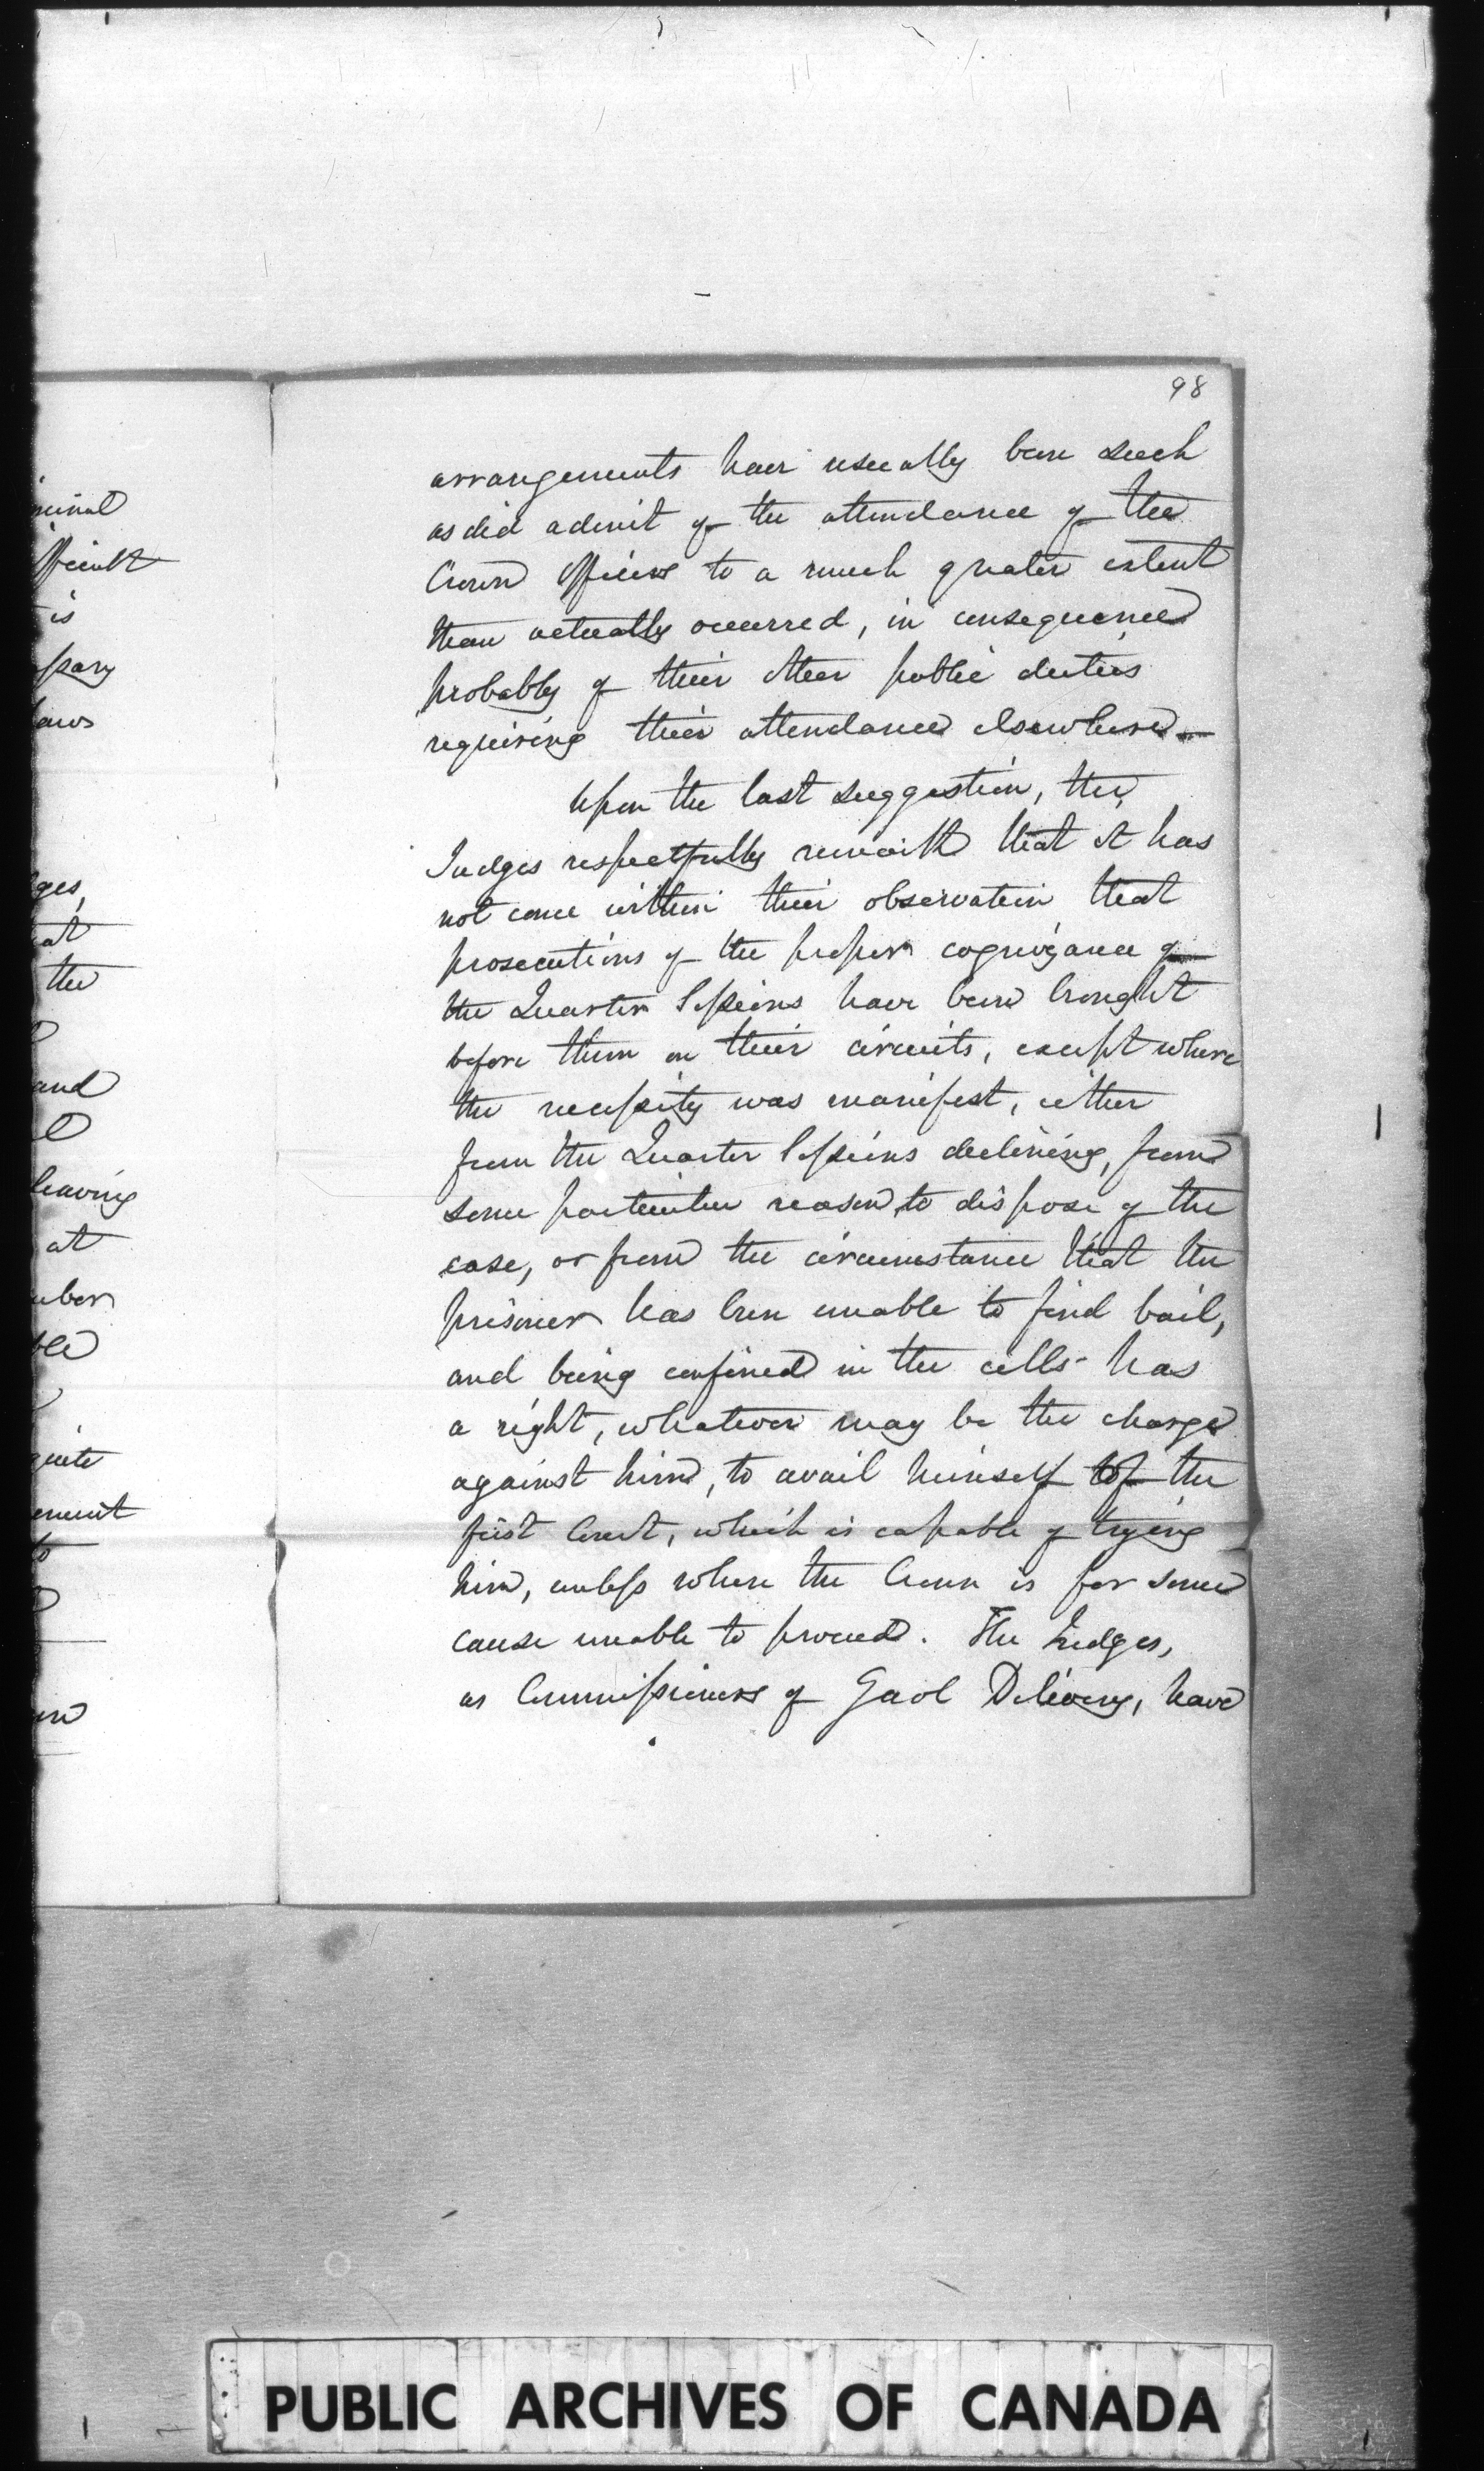 98
arrangements have usually been such
as did admit of the attendance of the
Crown Officers to a much greater extent
than actually occurred, in consequence
probably of their other public duties
requiring their attendance elsewhere—
Upon the last suggestion, the
Judges respectfully remark that it has
not come within their observation that
prosecutions of the proper cognizance of
the Quarter Sessions have been brought
before them on their circuits, except where
the necessity was manifest, either
from the Quarter Sessions declining, from
some particular reason, to dispose of the
case, or from the circumstance that the
prisoner has been unable to find bail,
and being confined in the cells has
a right, whatever may be the charge
against him, to avail himself of the
first Court, which is capable of trying
him, unless where the Crown is for some
cause unable to proceed. The Judges,
as Commissioners of Gaol Delivery, have
minal
fficult
is
ssary
laws
ges,
at
the
and
leaving
at
mber
ble
quite
ement
to
PUBLIC ARCHIVES OF CANADA